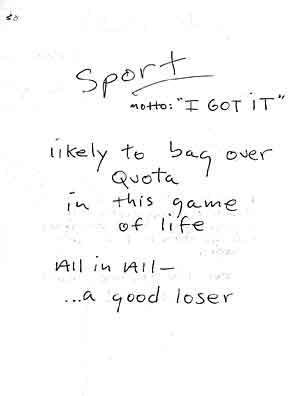 Sport
motto: "I GOT iT"
likely to bag over
Quota
in this game
of life
All in All—
...a good loser